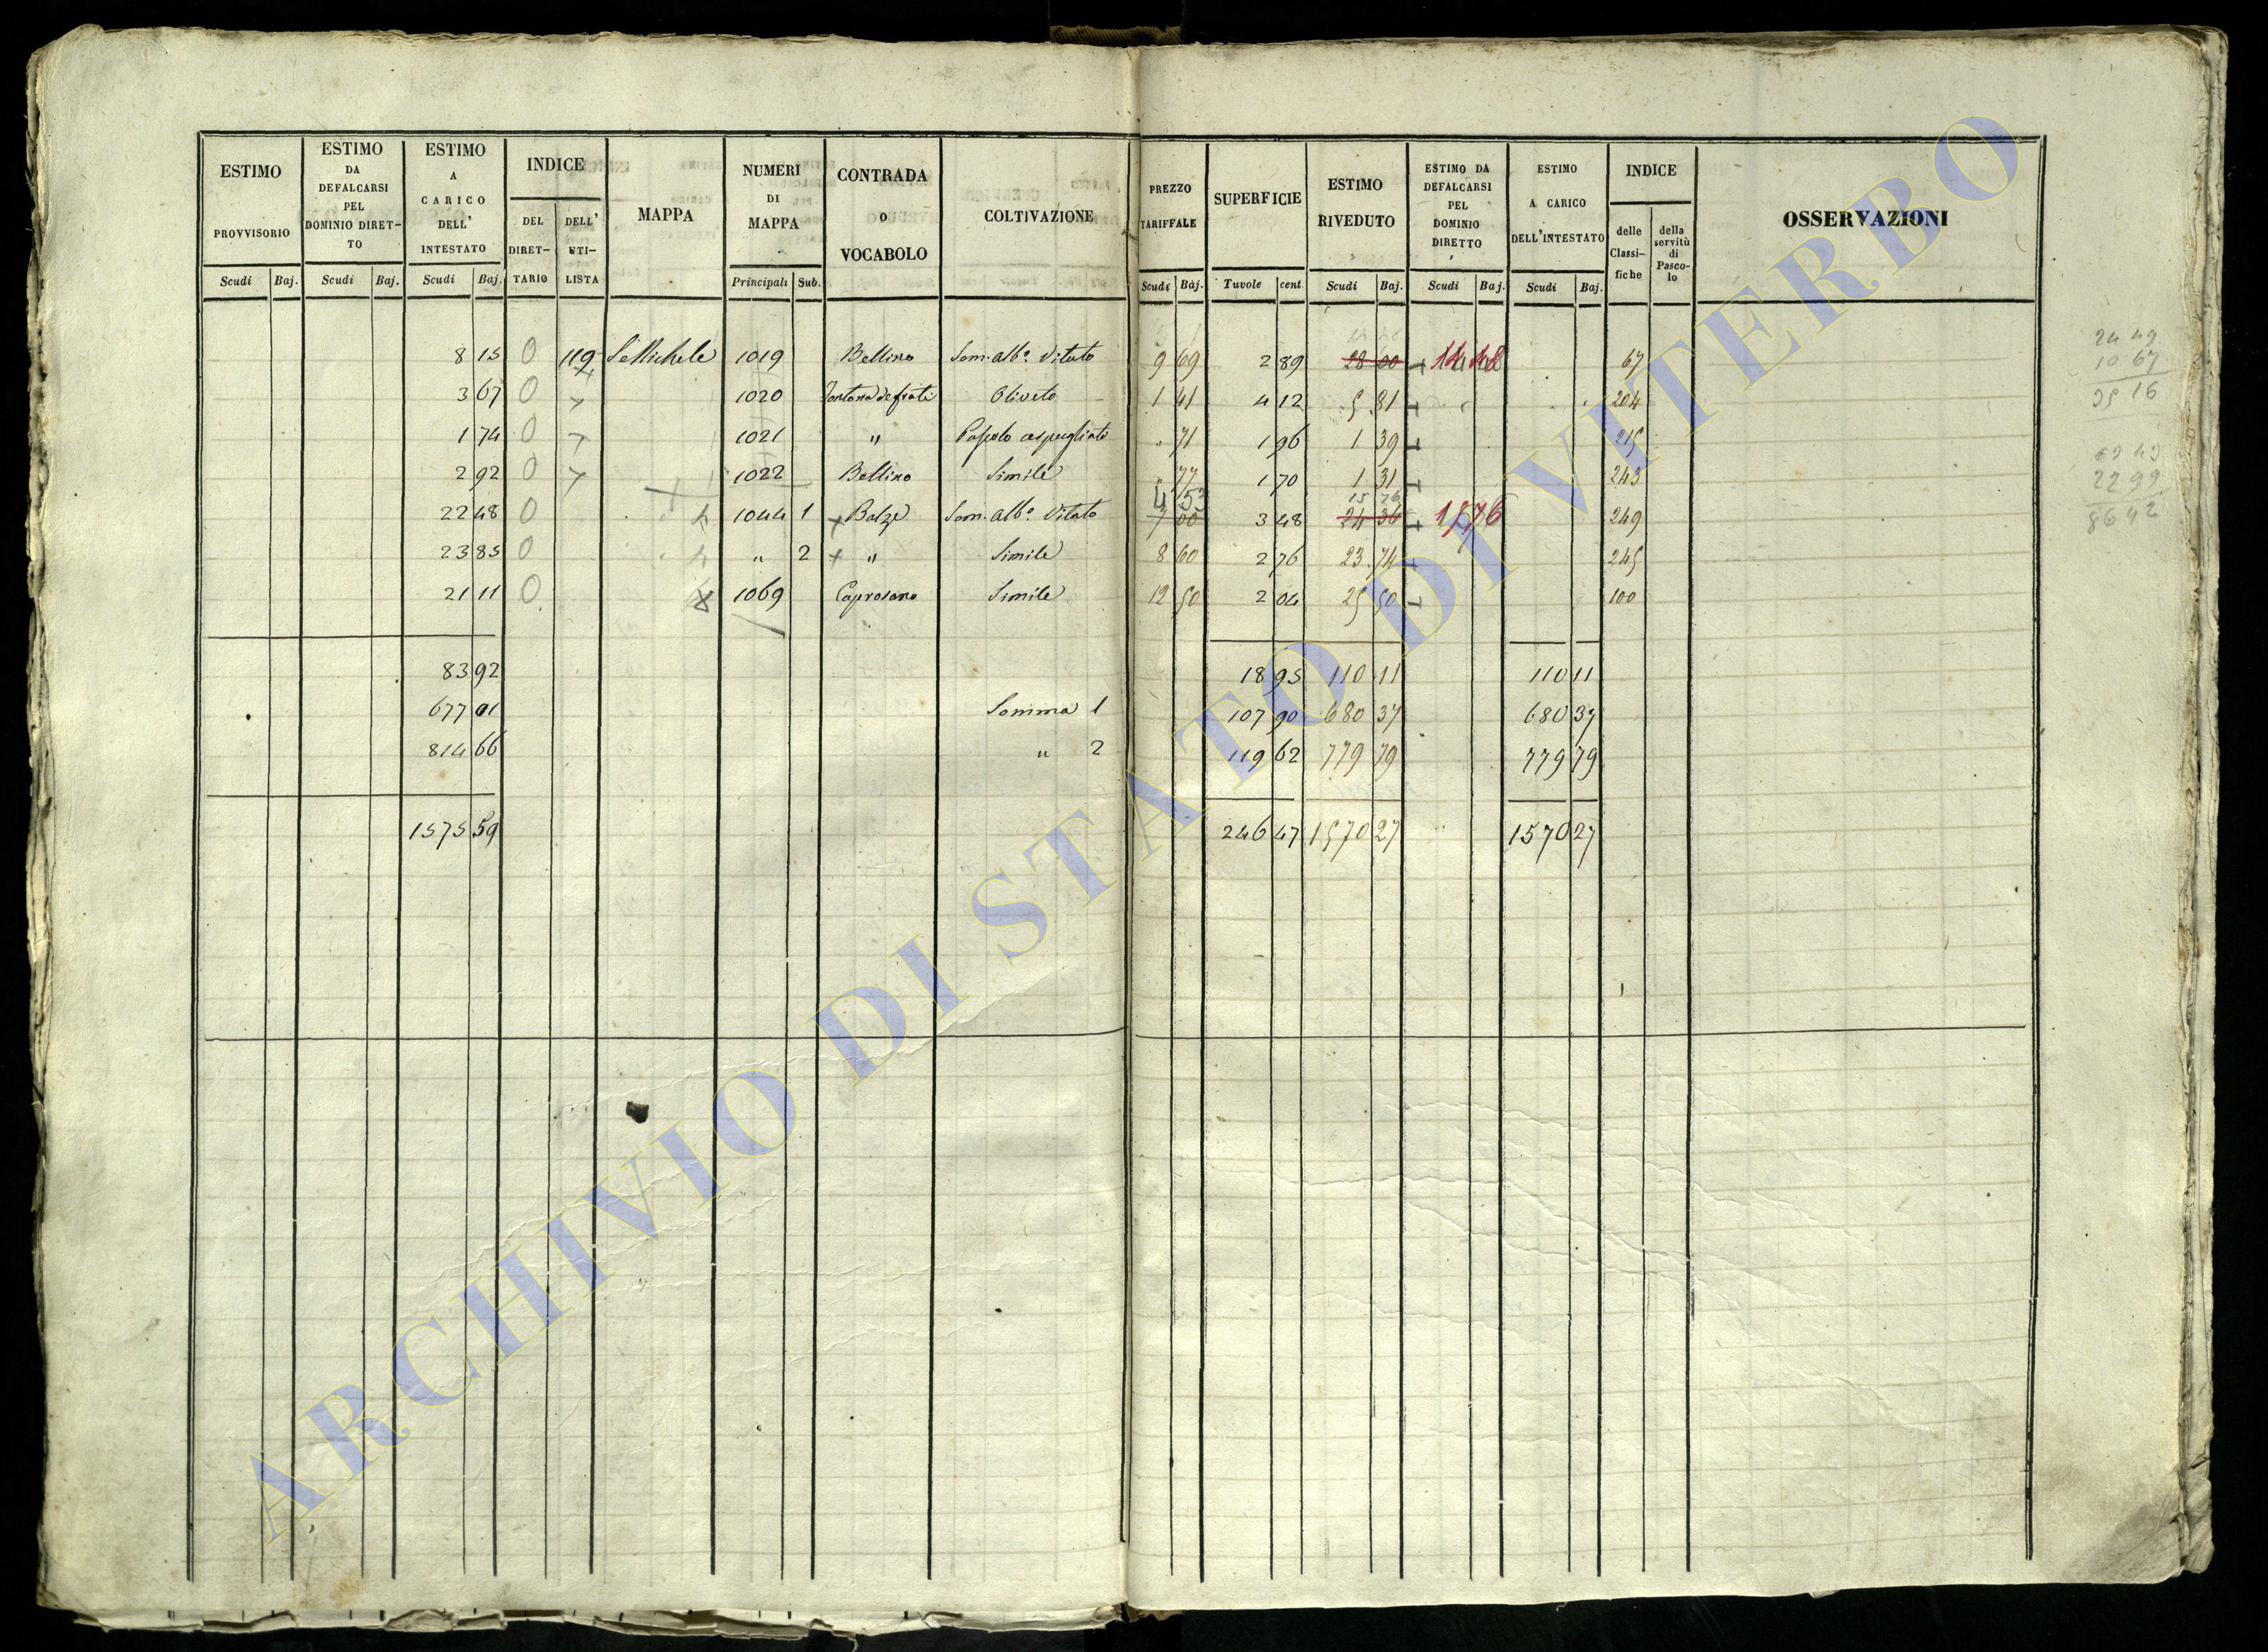 ESTIMO PROVVISORIO Scudi Baj.
ESTIMO DA DEFALCARSI PEL DOMINIO DIRET- TO Scudi Baj.
ESTIMO A CARICO DELL' INTESTATO Scudi Baj.
INDICE DEL DIRET- TARIO DELL' UTI- LISTA
MAPPA
NUMERI DI MAPPA Principali Sub.
CONTRADA O VOCABOLO
COLTIVAZIONE
PREZZO TARIFFALE Scudi Baj.
SUPERFICIE Tavole cent.
ESTIMO RIVEDUTO Scudi Baj.
ESTIMO DA DEFALCARSI PEL DOMINIO DIRETTO Scudi Baj.
ESTIMO A CARICO DELL'INTESTATO Scudi Baj.
INDICE delle Classi- fiche della servitù di Pasco- lo
OSSERVAZIONI
8 15 0 119 S. Michele 1019 Bellino Sem. alb.º Vitato 9 69 2 89 28 00 14 48 67
3 67 0 1020 Oliveto 1 41 4 12 5 81 204
1 74 0 1021 " Pascolo cespugliato 71 1 96 1 39 215
2 92 0 1022 Bellino Simile 77 1 70 1 31 243
4 53 15 76
22 48 0 1044 1 Balze Sem. alb.º Vitato 7 00 3 48 24 36 15 76 249
23 85 0 " 2 " Simile 8 60 2 76 23 74 245
21 11 0 1069 Simile 12 50 2 04 25 50 100
83 92 18 95 110 11 110 11
677 01 Somma 1 107 90 680 37 680 37
814 66 " 2 119 62 779 79 779 79
1575 59 246 47 1570 27 1570 27
24 49
10 67
35 16
22 99
86 42
ARCHIVIO DI STATO DI VITERBO